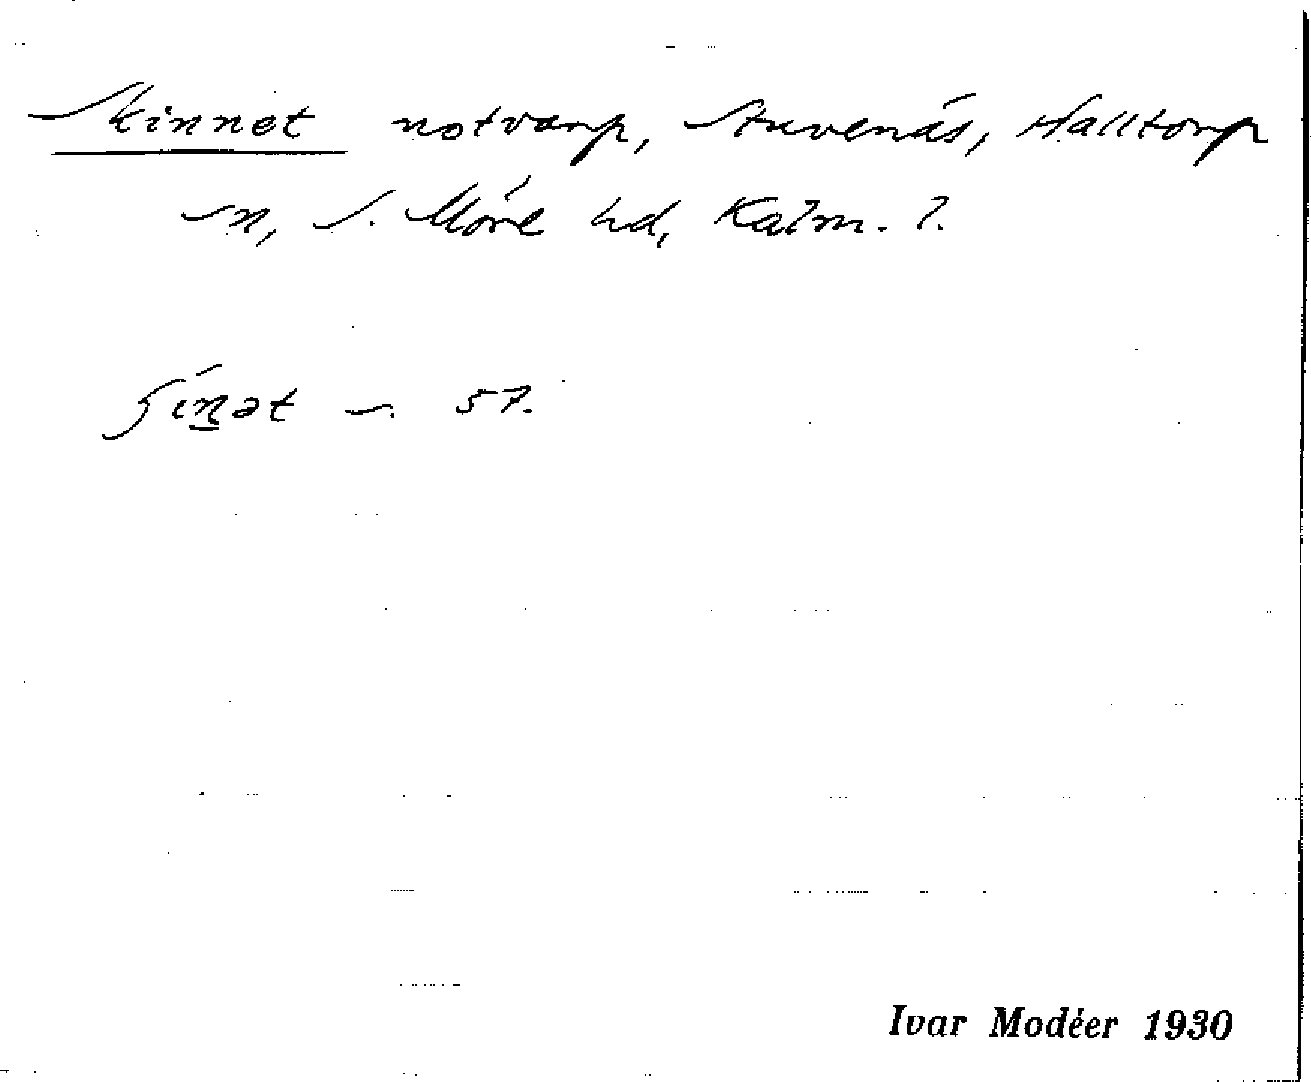 Skinnet notvarp, Stuvenäs, Halltorp
sn, S. Möre hd, Kalm. l.
ʃinət – 57.
Ivar Modéer 1930